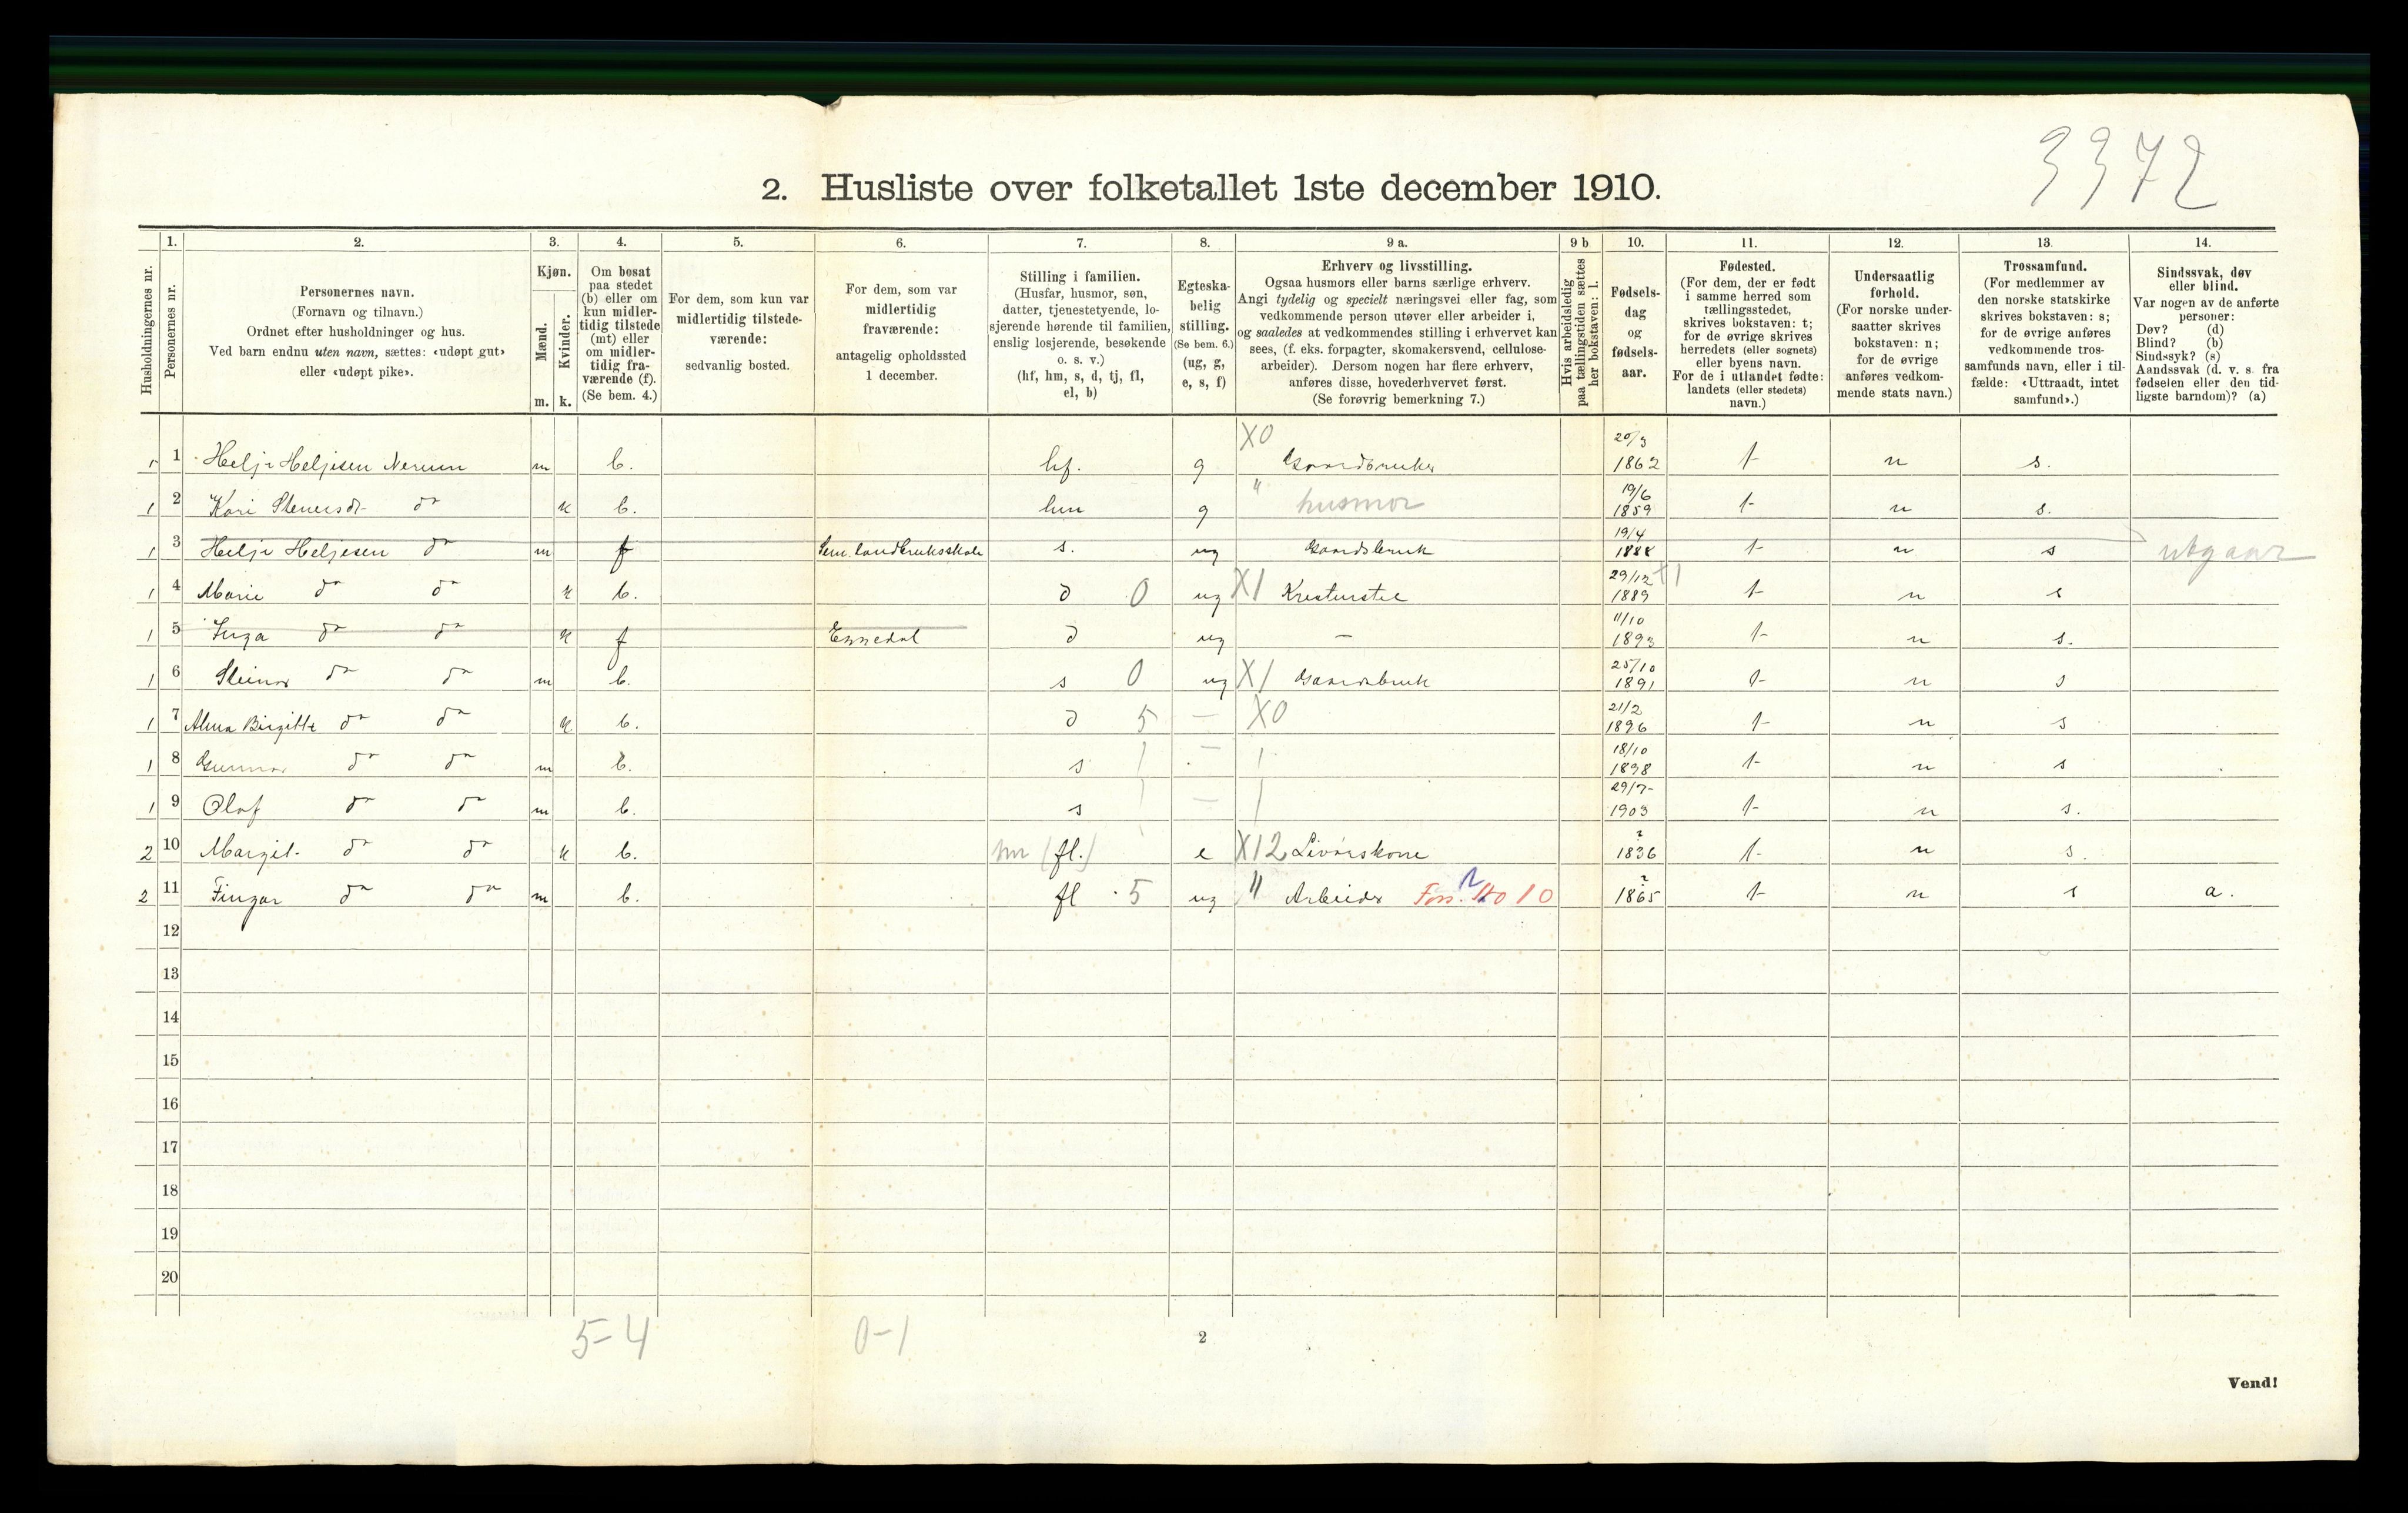 3372
2. Husliste over folketallet 1ste december 1910.
1. 2. 3. 4. 5. 6. 7. 8. 9 a. 9 b 10. 11. 12. 13. 14.
Husholdningernes nr.
Personernes nr.
Personernes navn.
(Fornavn og tilnavn.)
Ordnet efter husholdninger og hus.
Ved barn endnu uten navn, sættes: «udøpt gut»
eller «udøpt pike».
Kjøn.
Mænd.
Kvinder.
m. k.
Om bosat
paa stedet
(b) eller om
kun midler-
tidig tilstede
(mt) eller
om midler-
tidig fra-
værende (f).
(Se bem. 4.)
For dem, som kun var
midlertidig tilstede-
værende:
sedvanlig bosted.
For dem, som var
midlertidig
fraværende:
antagelig opholdssted
1 december.
Stilling i familien.
(Husfar, husmor, søn,
datter, tjenestetyende, lo-
sjerende hørende til familien,
enslig losjerende, besøkende
o. s. v.)
(hf, hm, s, d, tj, fl,
el, b)
Egteska-
belig
stilling.
(Se bem. 6.)
(ug, g,
e, s, f)
Erhverv og livsstilling.
Ogsaa husmors eller barns særlige erhverv.
Angi tydelig og specielt næringsvei eller fag, som
vedkommende person utøver eller arbeider i,
og saaledes at vedkommendes stilling i erhvervet kan
sees, (f. eks. forpagter, skomakersvend, cellulose-
arbeider). Dersom nogen har flere erhverv,
anføres disse, hovederhvervet først.
(Se forøvrig bemerkning 7.)
Hvis arbeidsledig
paa tællingstiden sættes
her bokstaven: l.
Fødsels-
dag
og
fødsels-
aar.
Fødested.
(For dem, der er født
i samme herred som
tællingsstedet,
skrives bokstaven: t;
for de øvrige skrives
herredets (eller sognets)
eller byens navn.
For de i utlandet fødte:
landets (eller stedets)
navn.)
Undersaatlig
forhold.
(For norske under-
saatter skrives
bokstaven: n;
for de øvrige
anføres vedkom-
mende stats navn.)
Trossamfund.
(For medlemmer av
den norske statskirke
skrives bokstaven: s;
for de øvrige anføres
vedkommende tros-
samfunds navn, eller i til-
fælde: «Uttraadt, intet
samfund».)
Sindssvak, døv
eller blind.
Var nogen av de anførte
personer:
Døv? (d)
Blind? (b)
Sindssyk? (s)
Aandssvak (d. v. s. fra
fødselen eller den tid-
ligste barndom)? (a)
1 1 Helje Heljesen Nerum m b. hf. g X0 Gaardbruker 20/3 1862 t n s.
1 2 Kari Stenersdr do k b. hm g " husmor 19/6 1859 t n s.
1 3 Helje Heljesen do m f Sem. landbruksskole s. ug Gaardsbruk 19/4 1888 t n s utgaar
1 4 Marie do do k b. d 0 ug X1 Krøtturstel 29/12 1889 t n s
1 5 Inga do do k f d ug — 11/10 1893 t n s.
1 6 Steinar do do m b. s 0 ug X1 Gaardsbruk 25/10 1891 t n s
1 7 Alma Birgitte do do k b. d 5 — X0 21/2 1896 t n s
1 8 Gunnar do do m b. s 1 — 1 18/10 1898 t n s
1 9 Olaf do do m b. s 1 — 1 29/7 1903 t n s.
2 10 Margit do do k b. hm (fl.) e X12 Livørskone ? 1836 t n s.
2 11 Fingar do do m b. fl 5 ug " Arbeider ? 1865 t n s a.
12
13
14
15
16
17
18
19
20
5-4 0-1
2
Vend!